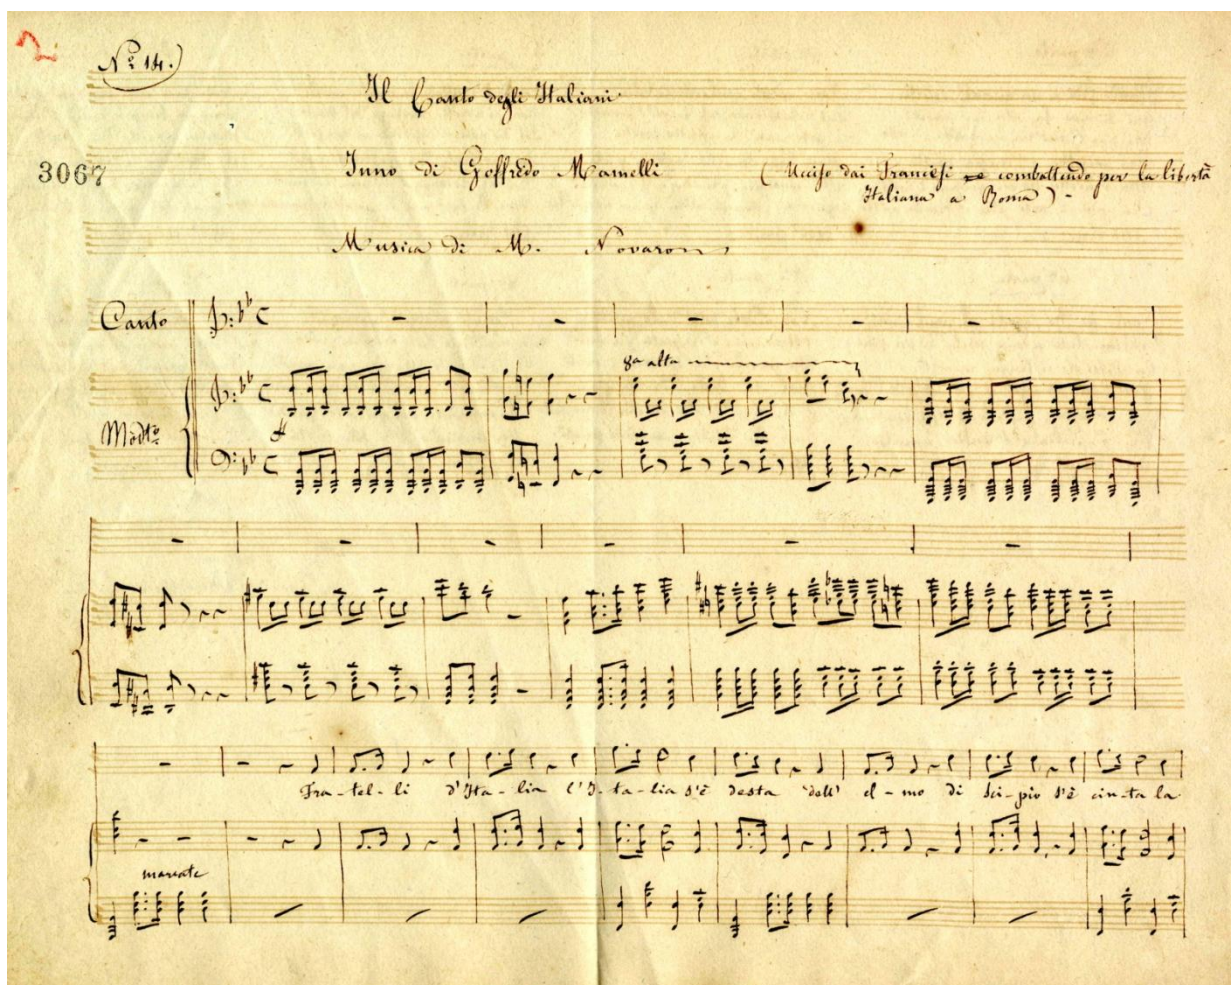 Nº 14.)
Il Canto degli Italiani
3067
Inno di Goffredo Mamelli (Ucciso dai Francesi combattendo per la libertà
Italiana a Roma) -
Musica di M. Novaro
Canto
8ª alta
Modto
Fra-tel-li d'Ita-lia l'I-ta-lia s'è desta dell' el-mo di Sci-pio s'è cin-ta la
marcate